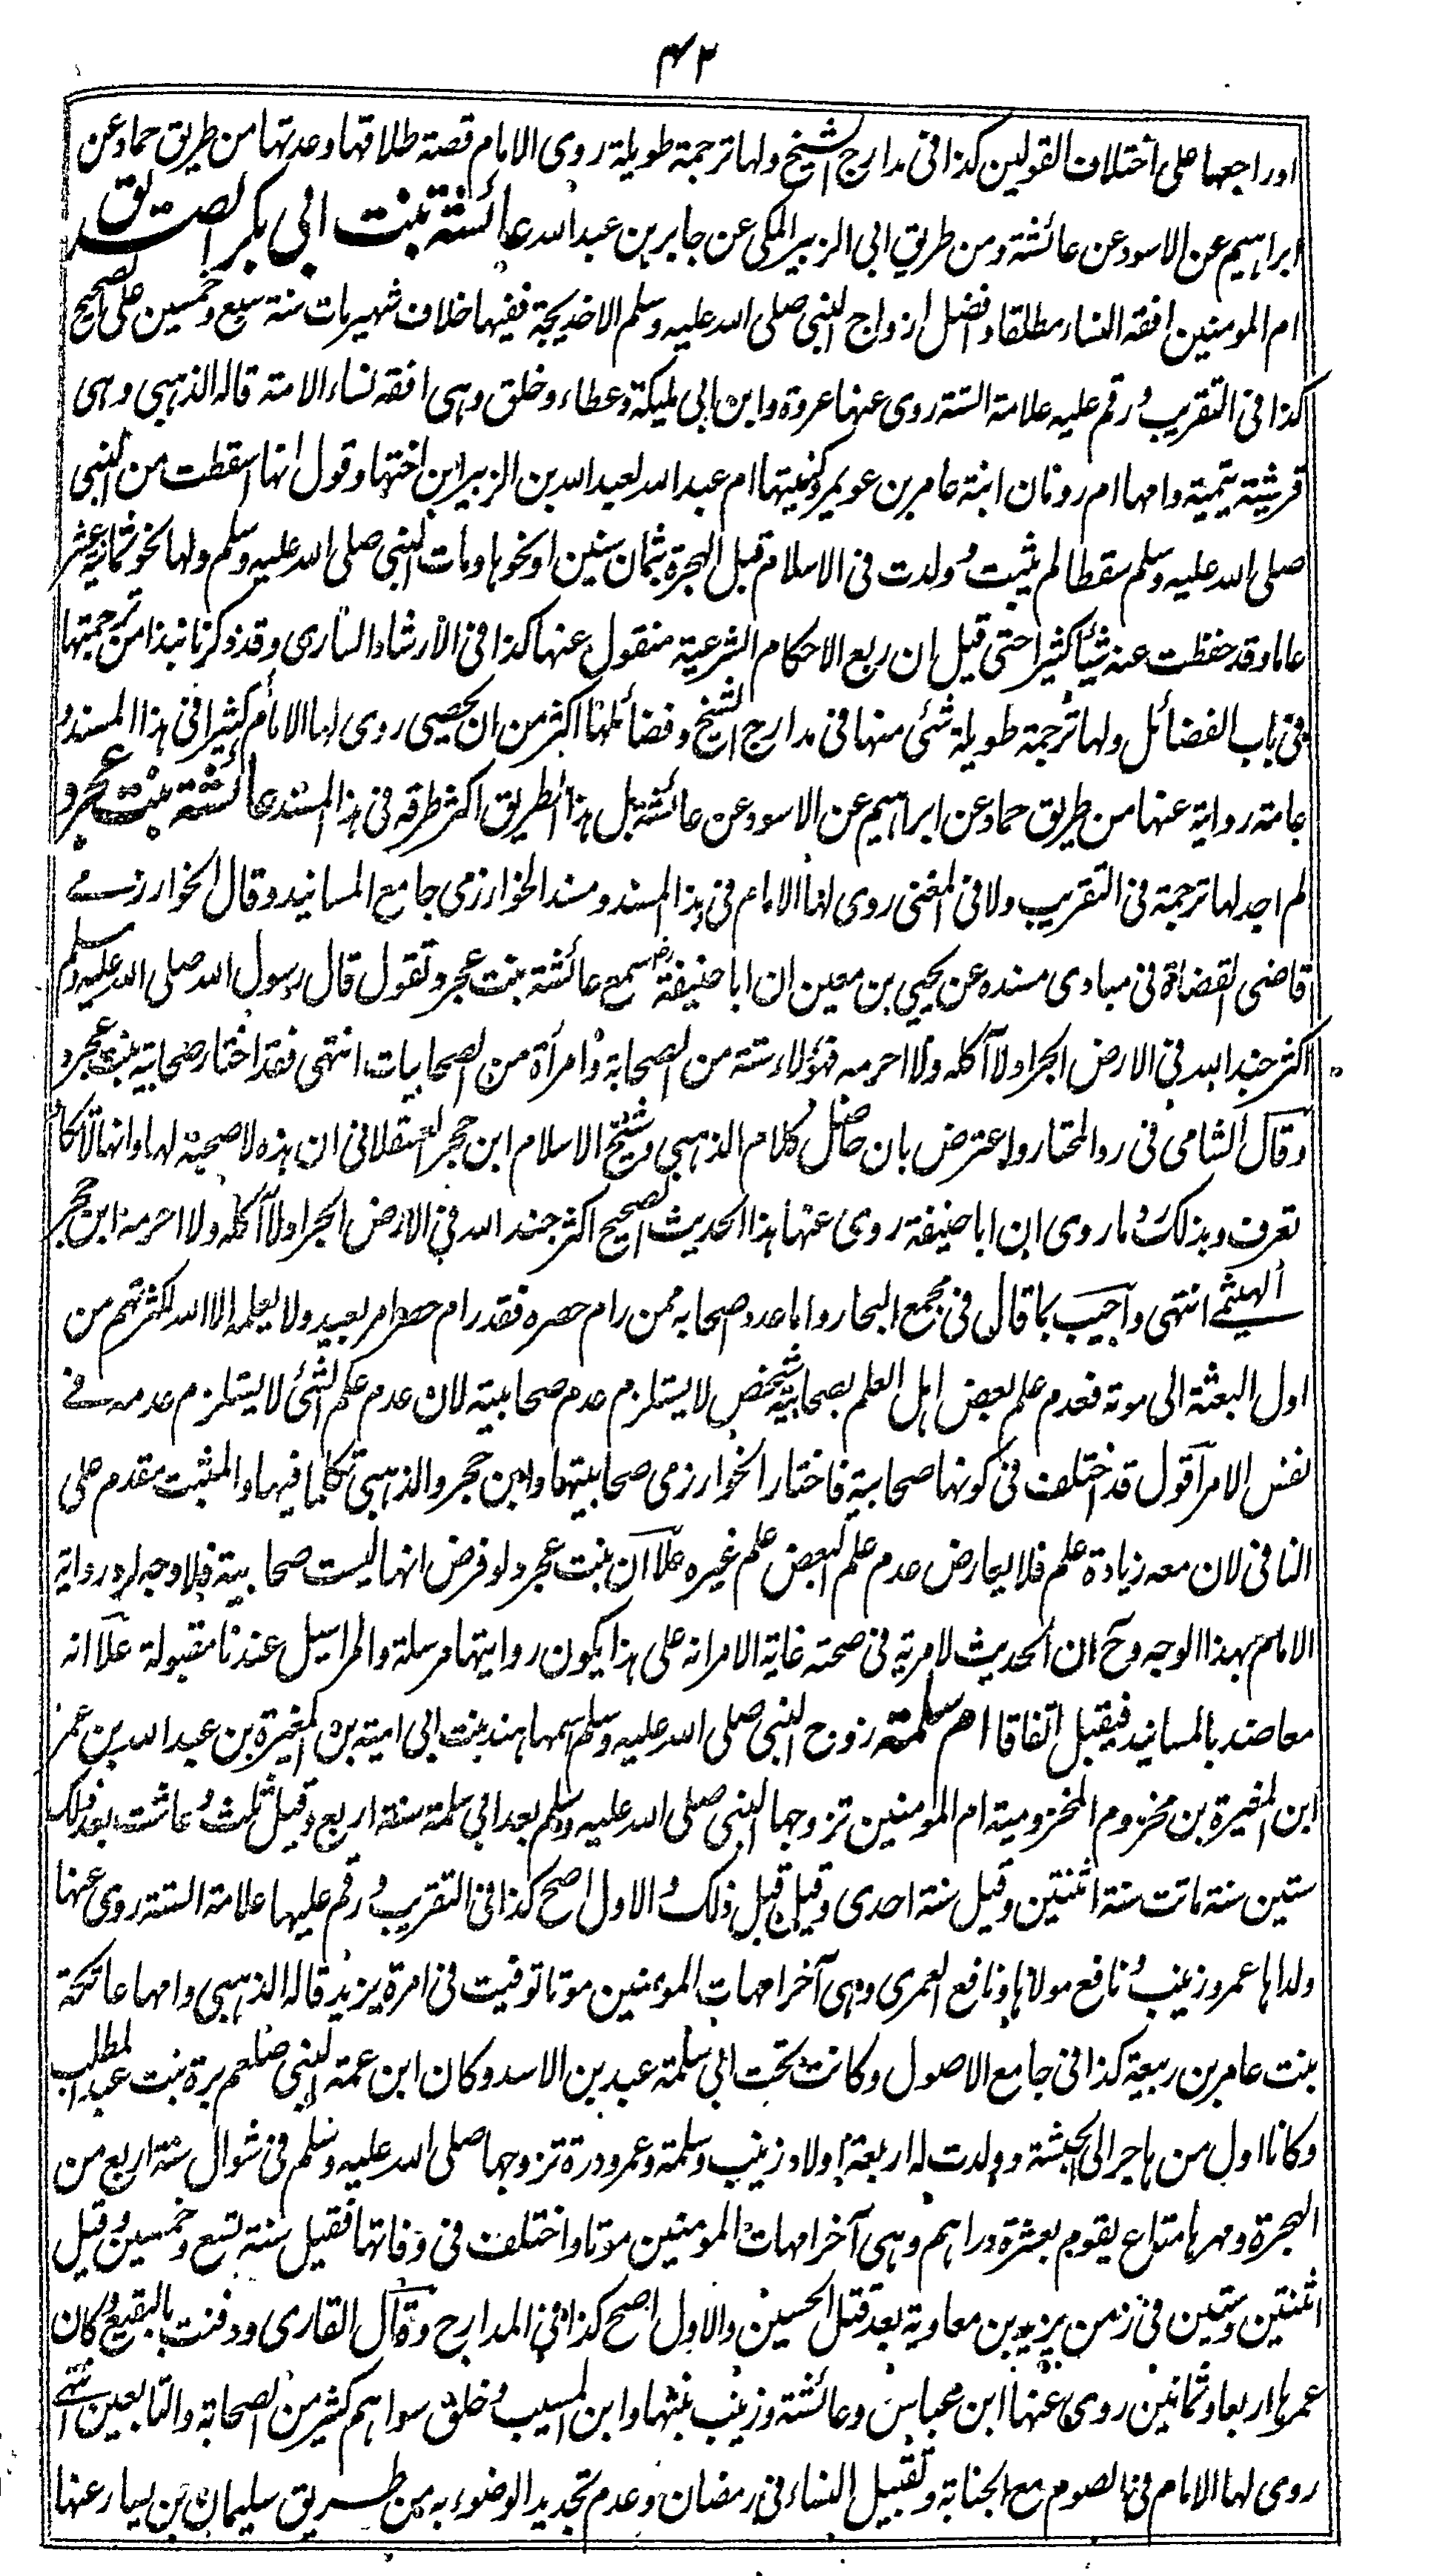 ۴۲
او راجعها على اختلاف القولين كذا فى مدارج الشيخ ولها ترجمة طويلة روى الامام قصة طلاقها وعدتها من طريق حماد عن
ابراهيم عن الاسود عن عائشة ومن طريق ابى الزبير المكى عن جابر بن عبد الله عائشة بنت ابى بكر الصديق
ام المومنين افقه النساء مطلقا وافضل ازواج النبى صلى الله عليه وسلم الا خديجة ففيها خلاف شهير ماتت سنة سبع وخمسين على الصحيح
كذا فى التقريب ورقم عليه علامة الستة روى عنها عروة وابن ابى مليكة وعطاء وخلق وهى افقه نساء الامة قاله الذهبى وهى
قرشية تيمية وامها ام رومان ابنة عامر بن عويمر وكنيتها ام عبد الله لعبد الله بن الزبير ابن اختها وقول انها اسقطت من النبى
صلى الله عليه وسلم سقطا لم يثبت ولدت فى الاسلام قبل الهجرة بثمان سنين او نحوها ومات النبى صلى الله عليه وسلم ولها نحو ثمانية عشر
عاما وقد حفظت عنه شيئا كثيرا حتى قيل ان ربع الاحكام الشرعية منقول عنها كذا فى الارشاد السارى وقد ذكرنا نبذا من ترجمتها
فى باب الفضائل ولها ترجمة طويلة شئى منها فى مدارج الشيخ وفضائلها اكثر من ان يحصى روى لها الامام كثيرا فى هذا المسند و
عامة رواية عنها من طريق حماد عن ابراهيم عن الاسود عن عائشة بل هذا الطريق اكثر طرقه فى هذا المسند عائشة بنت عجرد
لم اجد لها ترجمة فى التقريب ولا فى المغنى روى لها الامام فى هذا المسند ومسند الخوارزمى جامع المسانيد وقال الخوارزمى
قاضى القضاة فى مبادى مسنده عن يحيى بن معين ان ابا حنيفة رض سمع عائشة بنت عجرد تقول قال رسول الله صلى الله عليه وسلم
اكثر جند الله فى الارض الجراد لا آكله ولا احرمه فهؤلاء ستة من الصحابة وامرأة من الصحابيات انتهى فقد اختار صحابية بنت عجرد
وقال الشامى فى رد المحتار واعترض بان حاصل كلام الذهبى وشيخ الاسلام ابن حجر العسقلانى ان هذه لا صحبة لها وانها لا تكاد
تعرف وبذلك رد ما روى ان ابا حنيفة روى عنها هذا الحديث الصحيح اكثر جند الله فى الارض الجراد لا آكله ولا احرمه ابن حجر
الهيثمى انتهى واجيب بما قال فى مجمع البحار واما عدد صحابه فمن رام حصره فقد رام حصر امر بعيد ولا يعلمه الا الله لكثرتهم من
اول البعثة الى موته فعدم علم بعض اهل العلم بصحابية شخص لا يستلزم عدم صحابيته لان عدم علم الشئ لا يستلزم عدمه فى
نفس الامر اقول قد اختلف فى كونها صحابية فاختار الخوارزمى صحابيتها وابن حجر والذهبى تكلما فيها والمثبت مقدم على
النافى لان معه زيادة علم فلا يعارض عدم علم البعض علم غيره علا ان بنت عجرد لو فرض انها ليست صحابية فلا وجه لرد رواية
الامام بهذا الوجه وح ان الحديث لا مرية فى صحته غاية الامر انه على هذا يكون روايتها مرسلة والمراسيل عندنا مقبولة علا انه
معاضد بالمسانيد فيقبل اتفاقا ام سلمة زوج النبى صلى الله عليه وسلم اسمها هند بنت ابى امية بن المغيرة بن عبد الله بن عمر
ابن المغيرة بن مخزوم المخزومية ام المومنين تزوجها النبى صلى الله عليه وسلم بعد ابى سلمة سنة اربع وقيل ثلث وعاشت بعد ذلك
ستين سنة ماتت سنة اثنتين وقيل سنة احدى وقيل قبل ذلك والاول اصح كذا فى التقريب ورقم عليها علامة الستة روى عنها
ولداها عمر وزينب ونافع مولاها ونافع العمرى وهى آخر امهات المومنين موتا توفيت فى امرة يزيد قاله الذهبى وامها عاتكة
بنت عامر بن ربيعة كذا فى جامع الاصول وكانت تحت ابى سلمة عبد بن الاسد وكان ابن عمة النبى صلعم برة بنت عبد المطلب
وكانا اول من هاجر الى الحبشة وولدت له اربعة اولاد زينب وسلمة وعمر ودرة تزوجها صلى الله عليه وسلم فى شوال سنة اربع من
الهجرة ومهرها متاع يقوم بعشرة دراهم وهى آخر امهات المومنين موتا واختلف فى وفاتها فقيل سنة تسع وخمسين وقيل
اثنتين وستين فى زمن يزيد بن معاوية بعد قتل الحسين والاول اصح كذا فى المدارج وقال القارى ودفنت بالبقيع وكان
عمرها اربعا وثمانين روى عنها ابن عباس وعائشة وزينب بنتها وابن المسيب وخلق سواهم كثير من الصحابة والتابعين انتهى
روى لها الامام فى الصوم مع الجنابة وتقبيل النساء فى رمضان وعدم تجديد الوضوء به من طريق سليمان بن يسار عنها